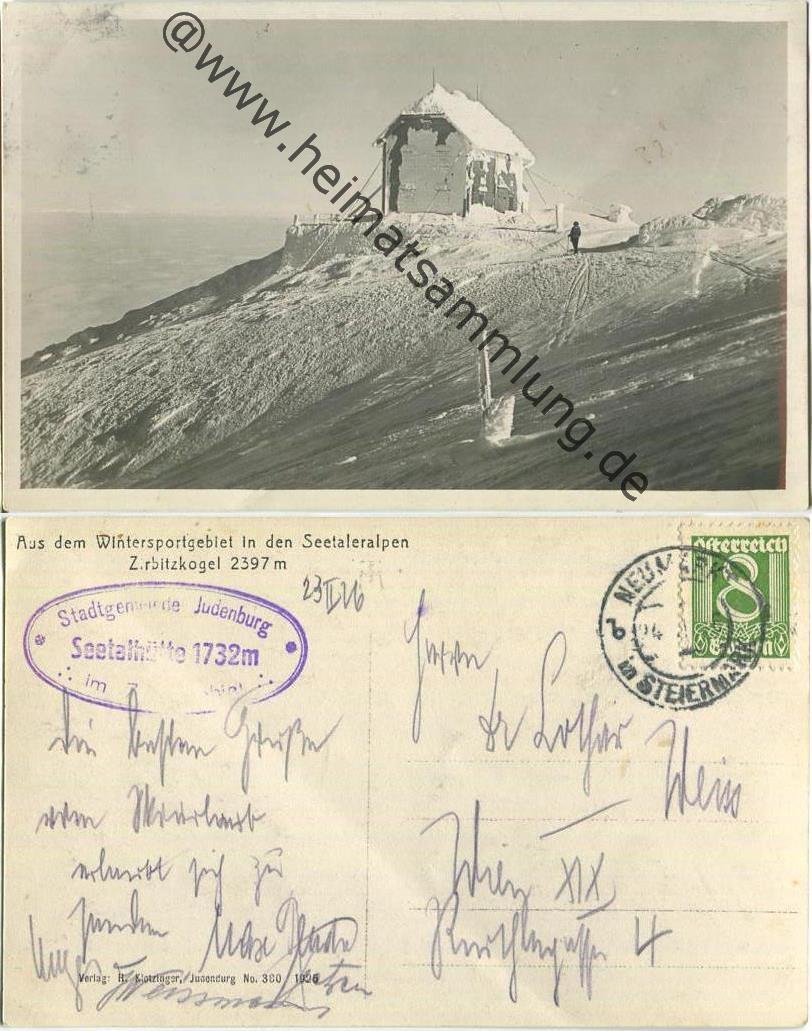 @www.heimatsammlung.de
Aus dem Wintersportgebiet in den Seetaleralpen
Zirbitzkogel 2397 m
23 II 26
Stadtgemeinde Judenburg
Seetalhütte 1732m
im
NEUMARKT
in STEIERMARK
b
24
Österreich
8
Groschen
Herrn
Dr Lothar
Weiss
Wien XIX
4
Die besten Grüße
vom
erlaubt sich zu
senden
Verlag: R. Klotzinger, Judenburg No. 380 1925